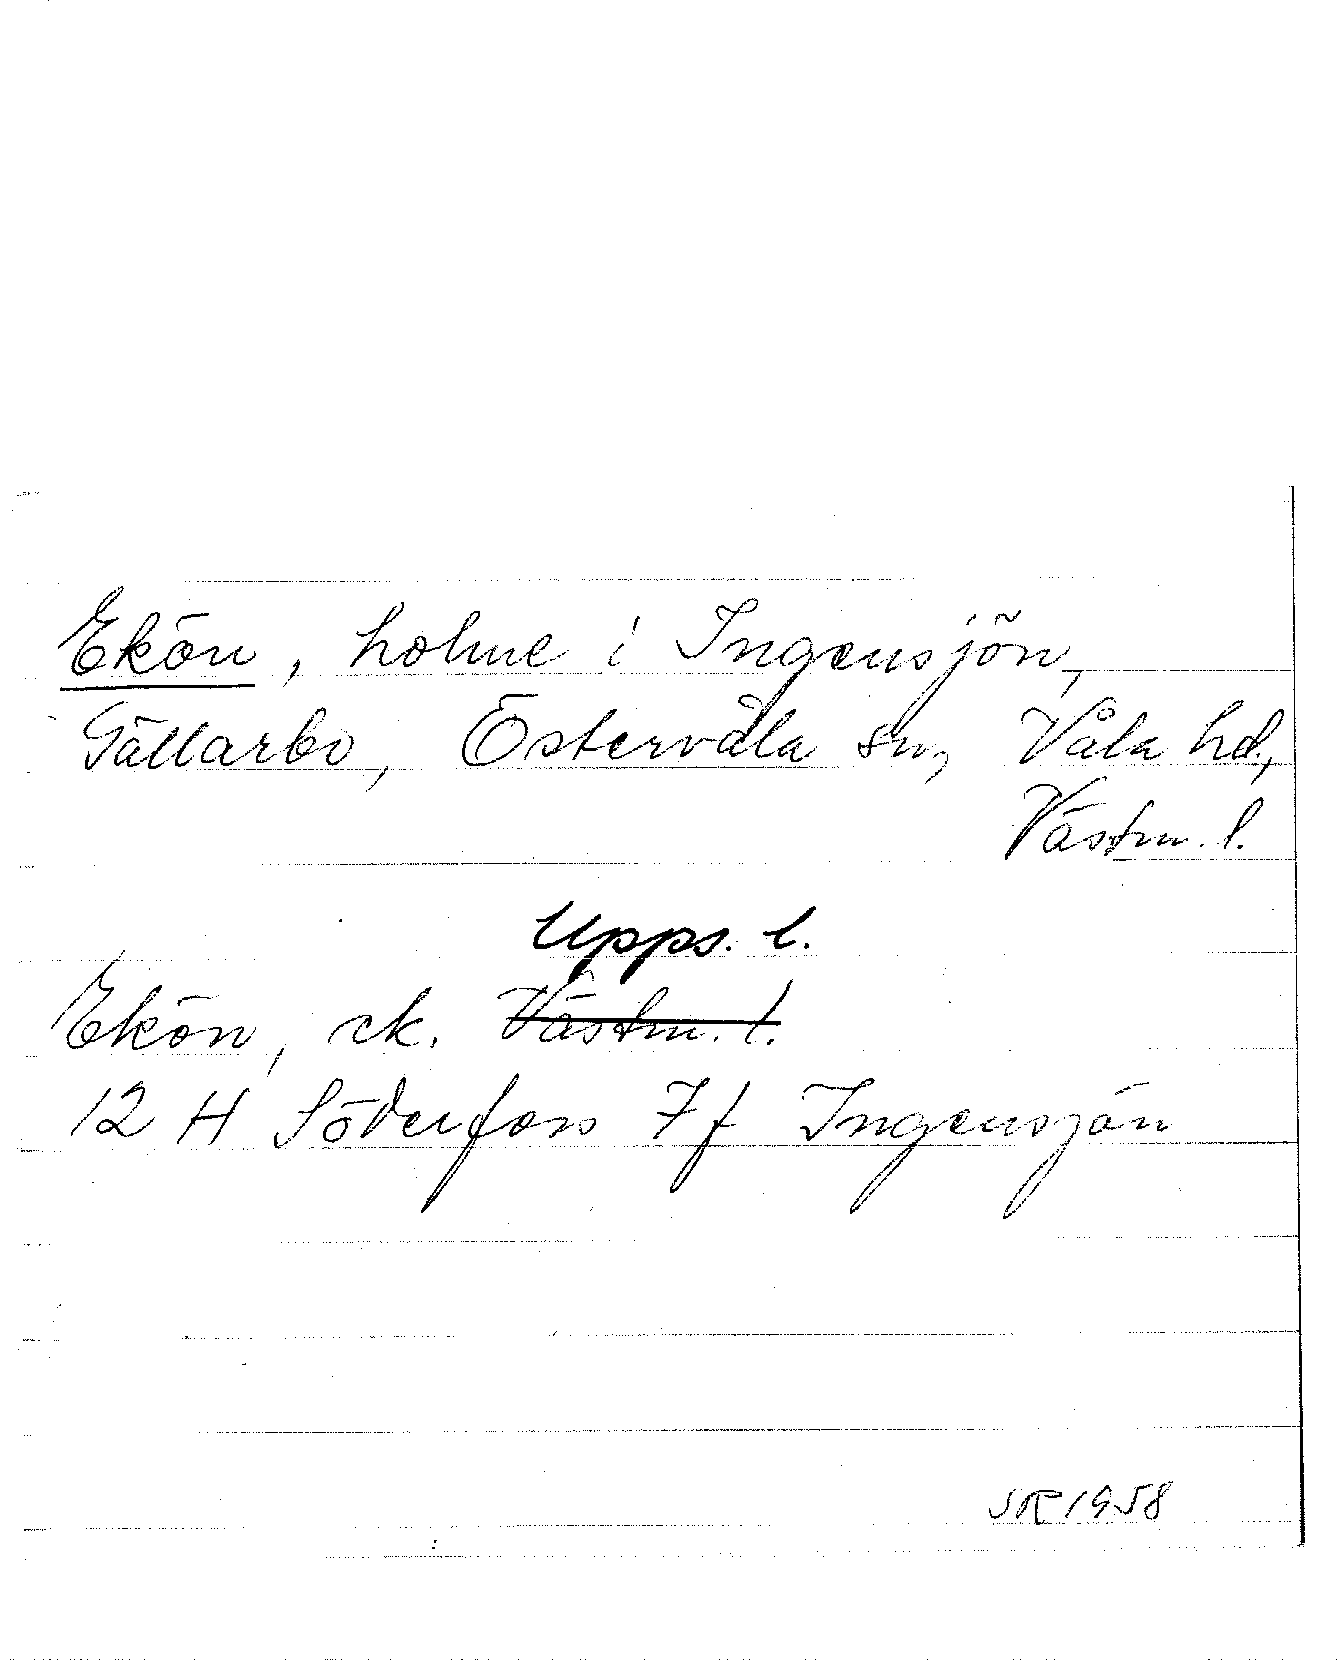 Ekön, holme i Ingensjön,
Gällarbo, Östervåla sn, Våla hd.,
Västm. l.
Upps. l.
Ekön, ek. Västm. l.
12 H Söderfors 7f Ingensjön
SR 1958